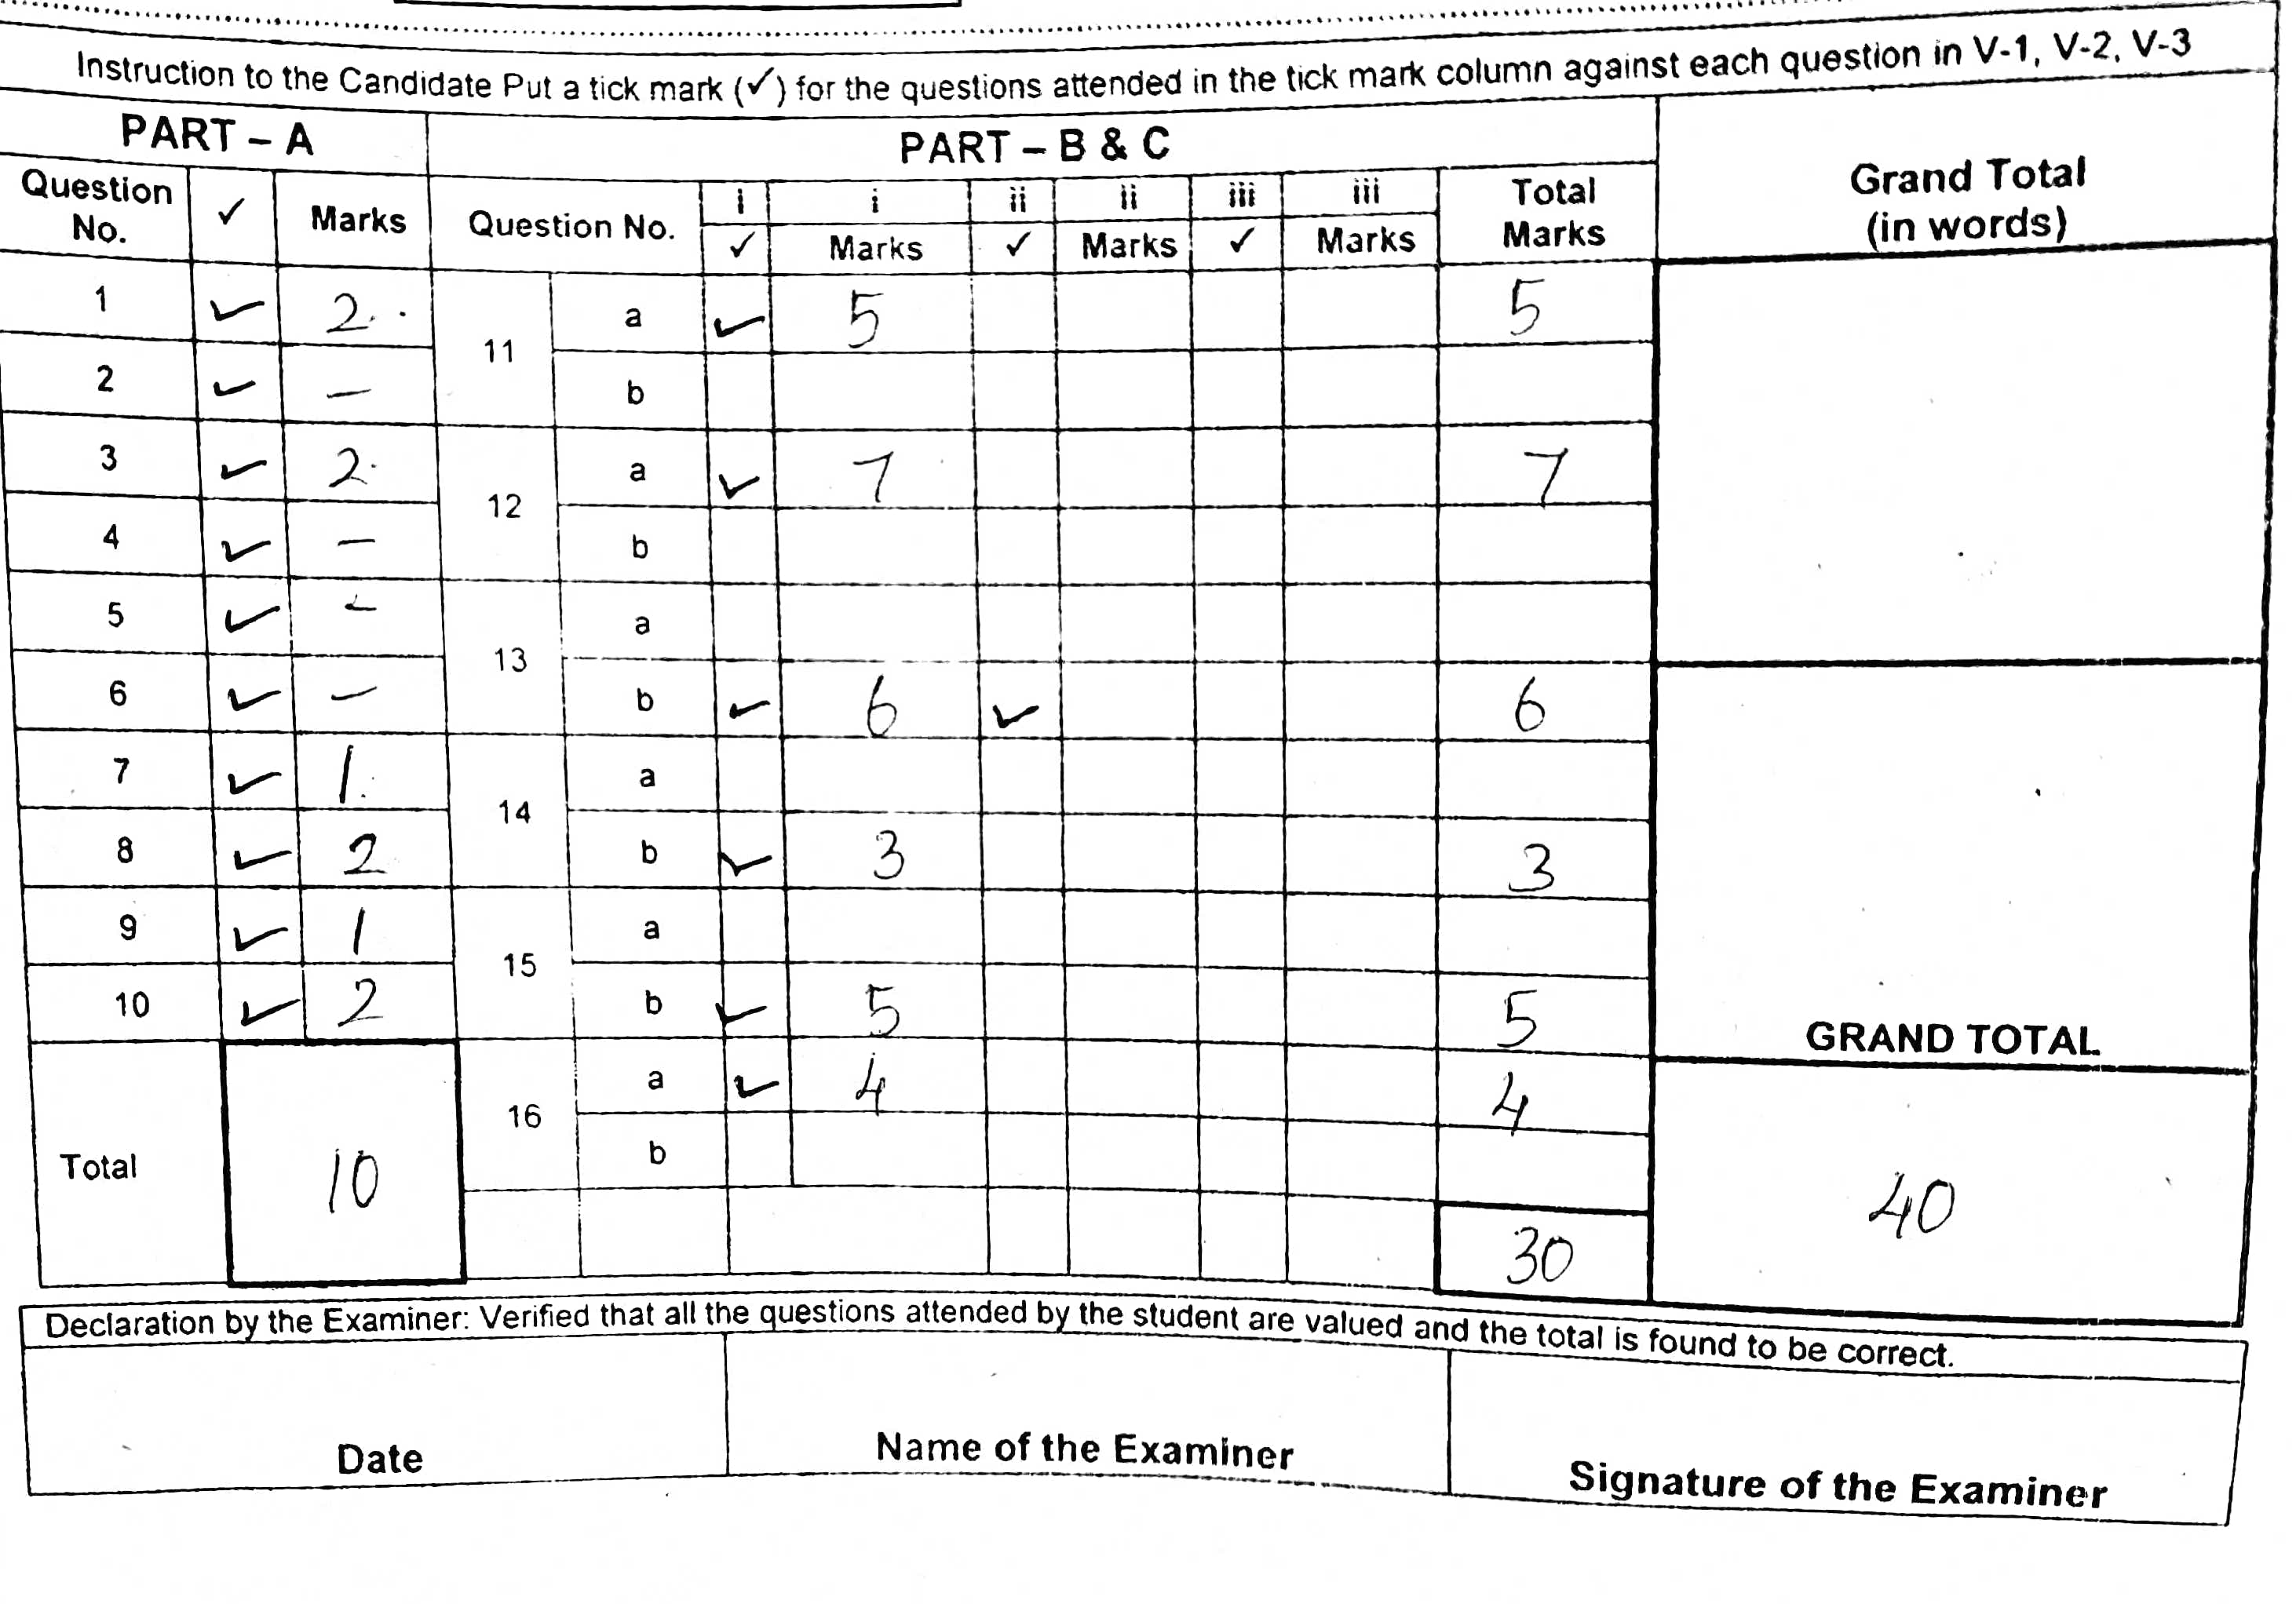 Instruction to the Candidate Put a tick mark (✓) for the questions attended in the tick mark column against each question in V-1, V-2, V-3
PART – A PART – B & C Grand Total (in words)
Question No. ✓ Marks Question No. i ✓ i Marks ii ✓ ii Marks iii ✓ iii Marks Total Marks
1 ✓ 2 11 a ✓ 5 5
2 ✓ – b
3 ✓ 2 12 a ✓ 7 7
4 ✓ – b
5 ✓ – 13 a
6 ✓ – b ✓ 6 ✓ 6
7 ✓ 1 14 a
8 ✓ 2 b ✓ 3 3
9 ✓ 1 15 a
10 ✓ 2 b ✓ 5 5 GRAND TOTAL
Total 10 16 a ✓ 4 4
b 40
30
Declaration by the Examiner: Verified that all the questions attended by the student are valued and the total is found to be correct.
Date Name of the Examiner Signature of the Examiner